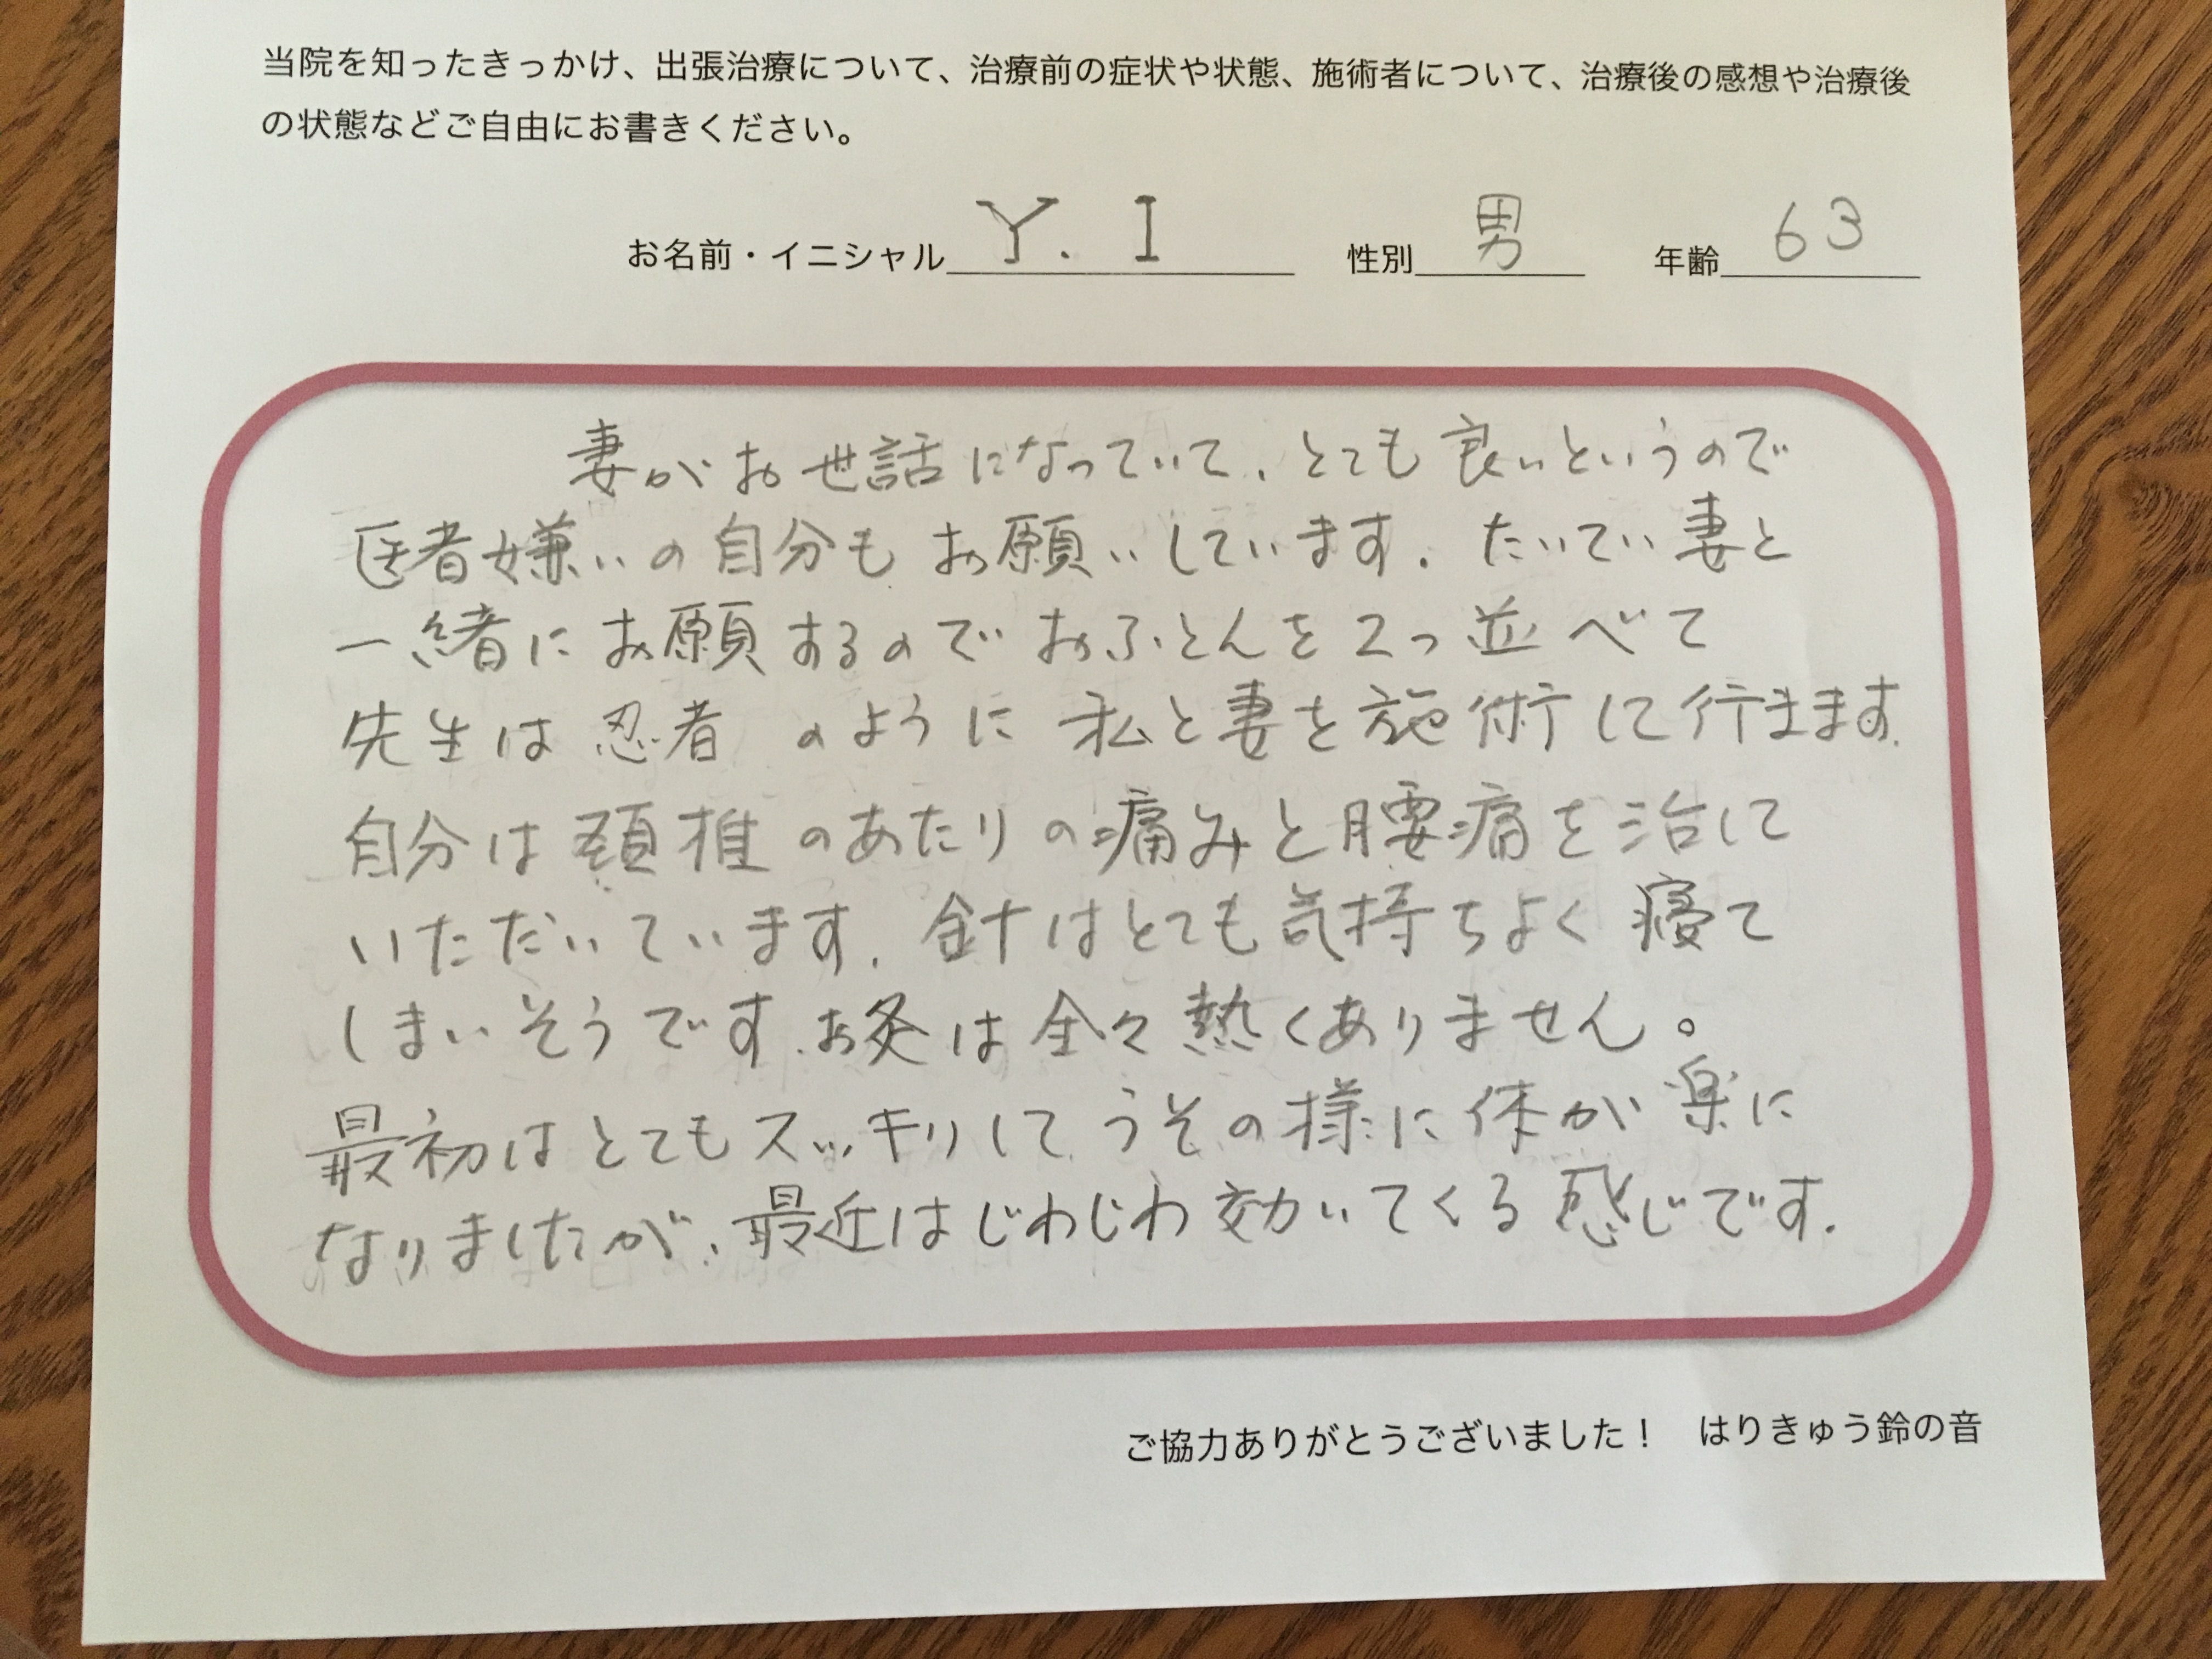 当院を知ったきっかけ、出張治療について、治療前の症状や状態、施術者について、治療後の感想や治療後
の状態などご自由にお書きください。
お名前・イニシャル Y. I 性別 男 年齢 63
妻がお世話になっていて、とても良いというので
医者嫌いの自分もお願いしています。たいてい妻と
一緒にお願するのでおふとんを2つ並べて
先生は忍者のように私と妻を施術して行きます。
自分は頚推のあたりの痛みと腰痛を治して
いただいています。針はとても気持ちよく寝て
しまいそうです。お灸は全々熱くありません。
最初はとてもスッキリしてうその様に体が楽に
なりましたが、最近はじわじわ効いてくる感じです。
ご協力ありがとうございました！ はりきゅう鈴の音